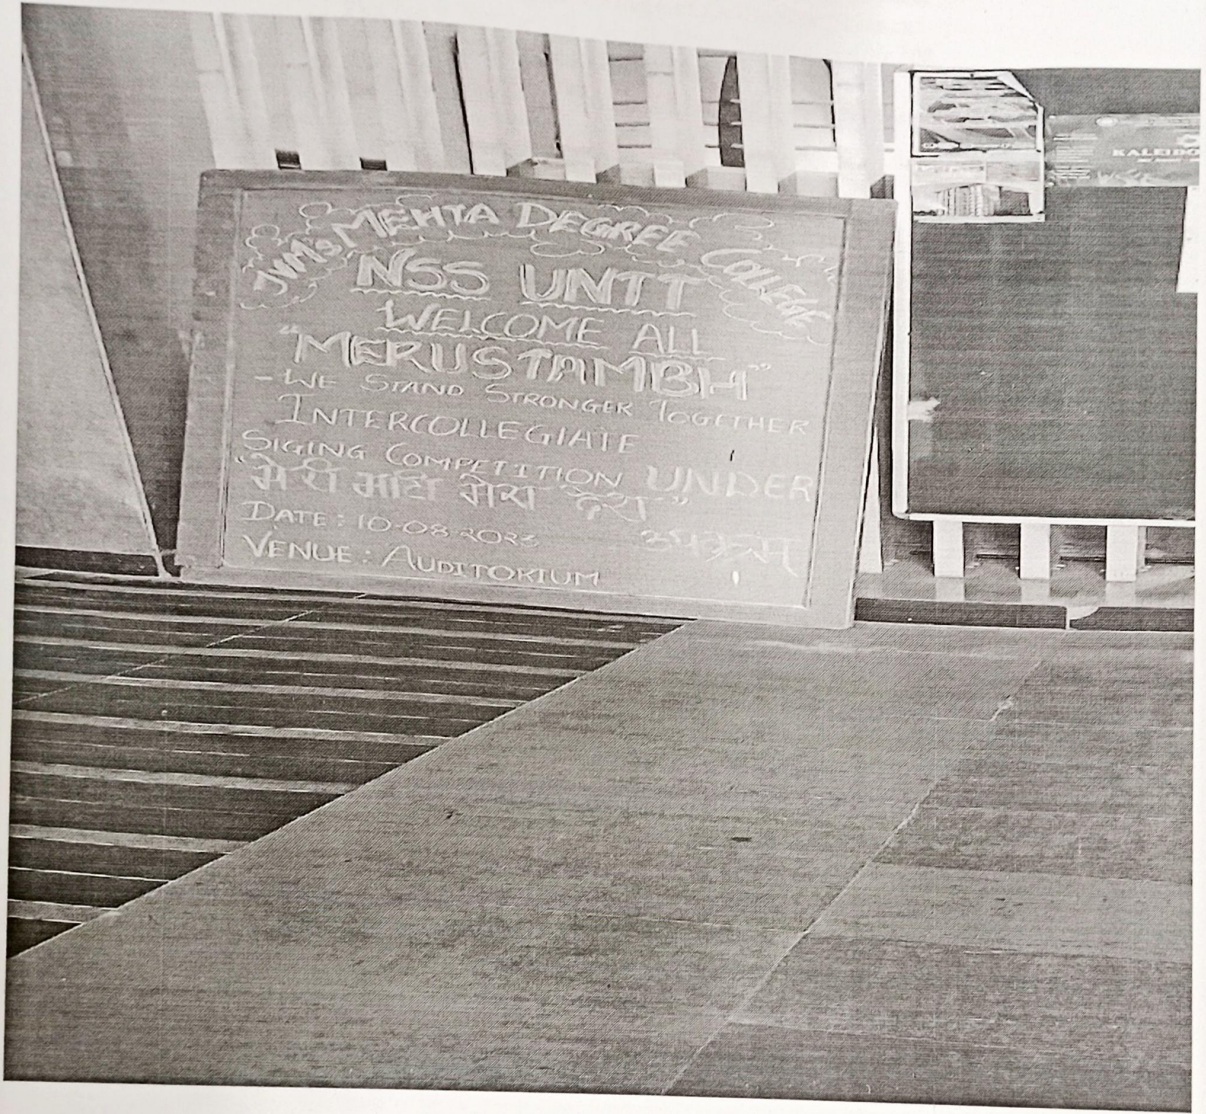 JVM's MEHTA DEGREE COLLEGE
NSS UNIT
WELCOME ALL
"MERUSTAMBH"
- WE STAND STRONGER TOGETHER
INTERCOLLEGIATE
SIGING COMPETITION UNDER
"मेरी माटी मेरा देश"
उपक्रम
DATE : 10-08-2023
VENUE : AUDITORIUM